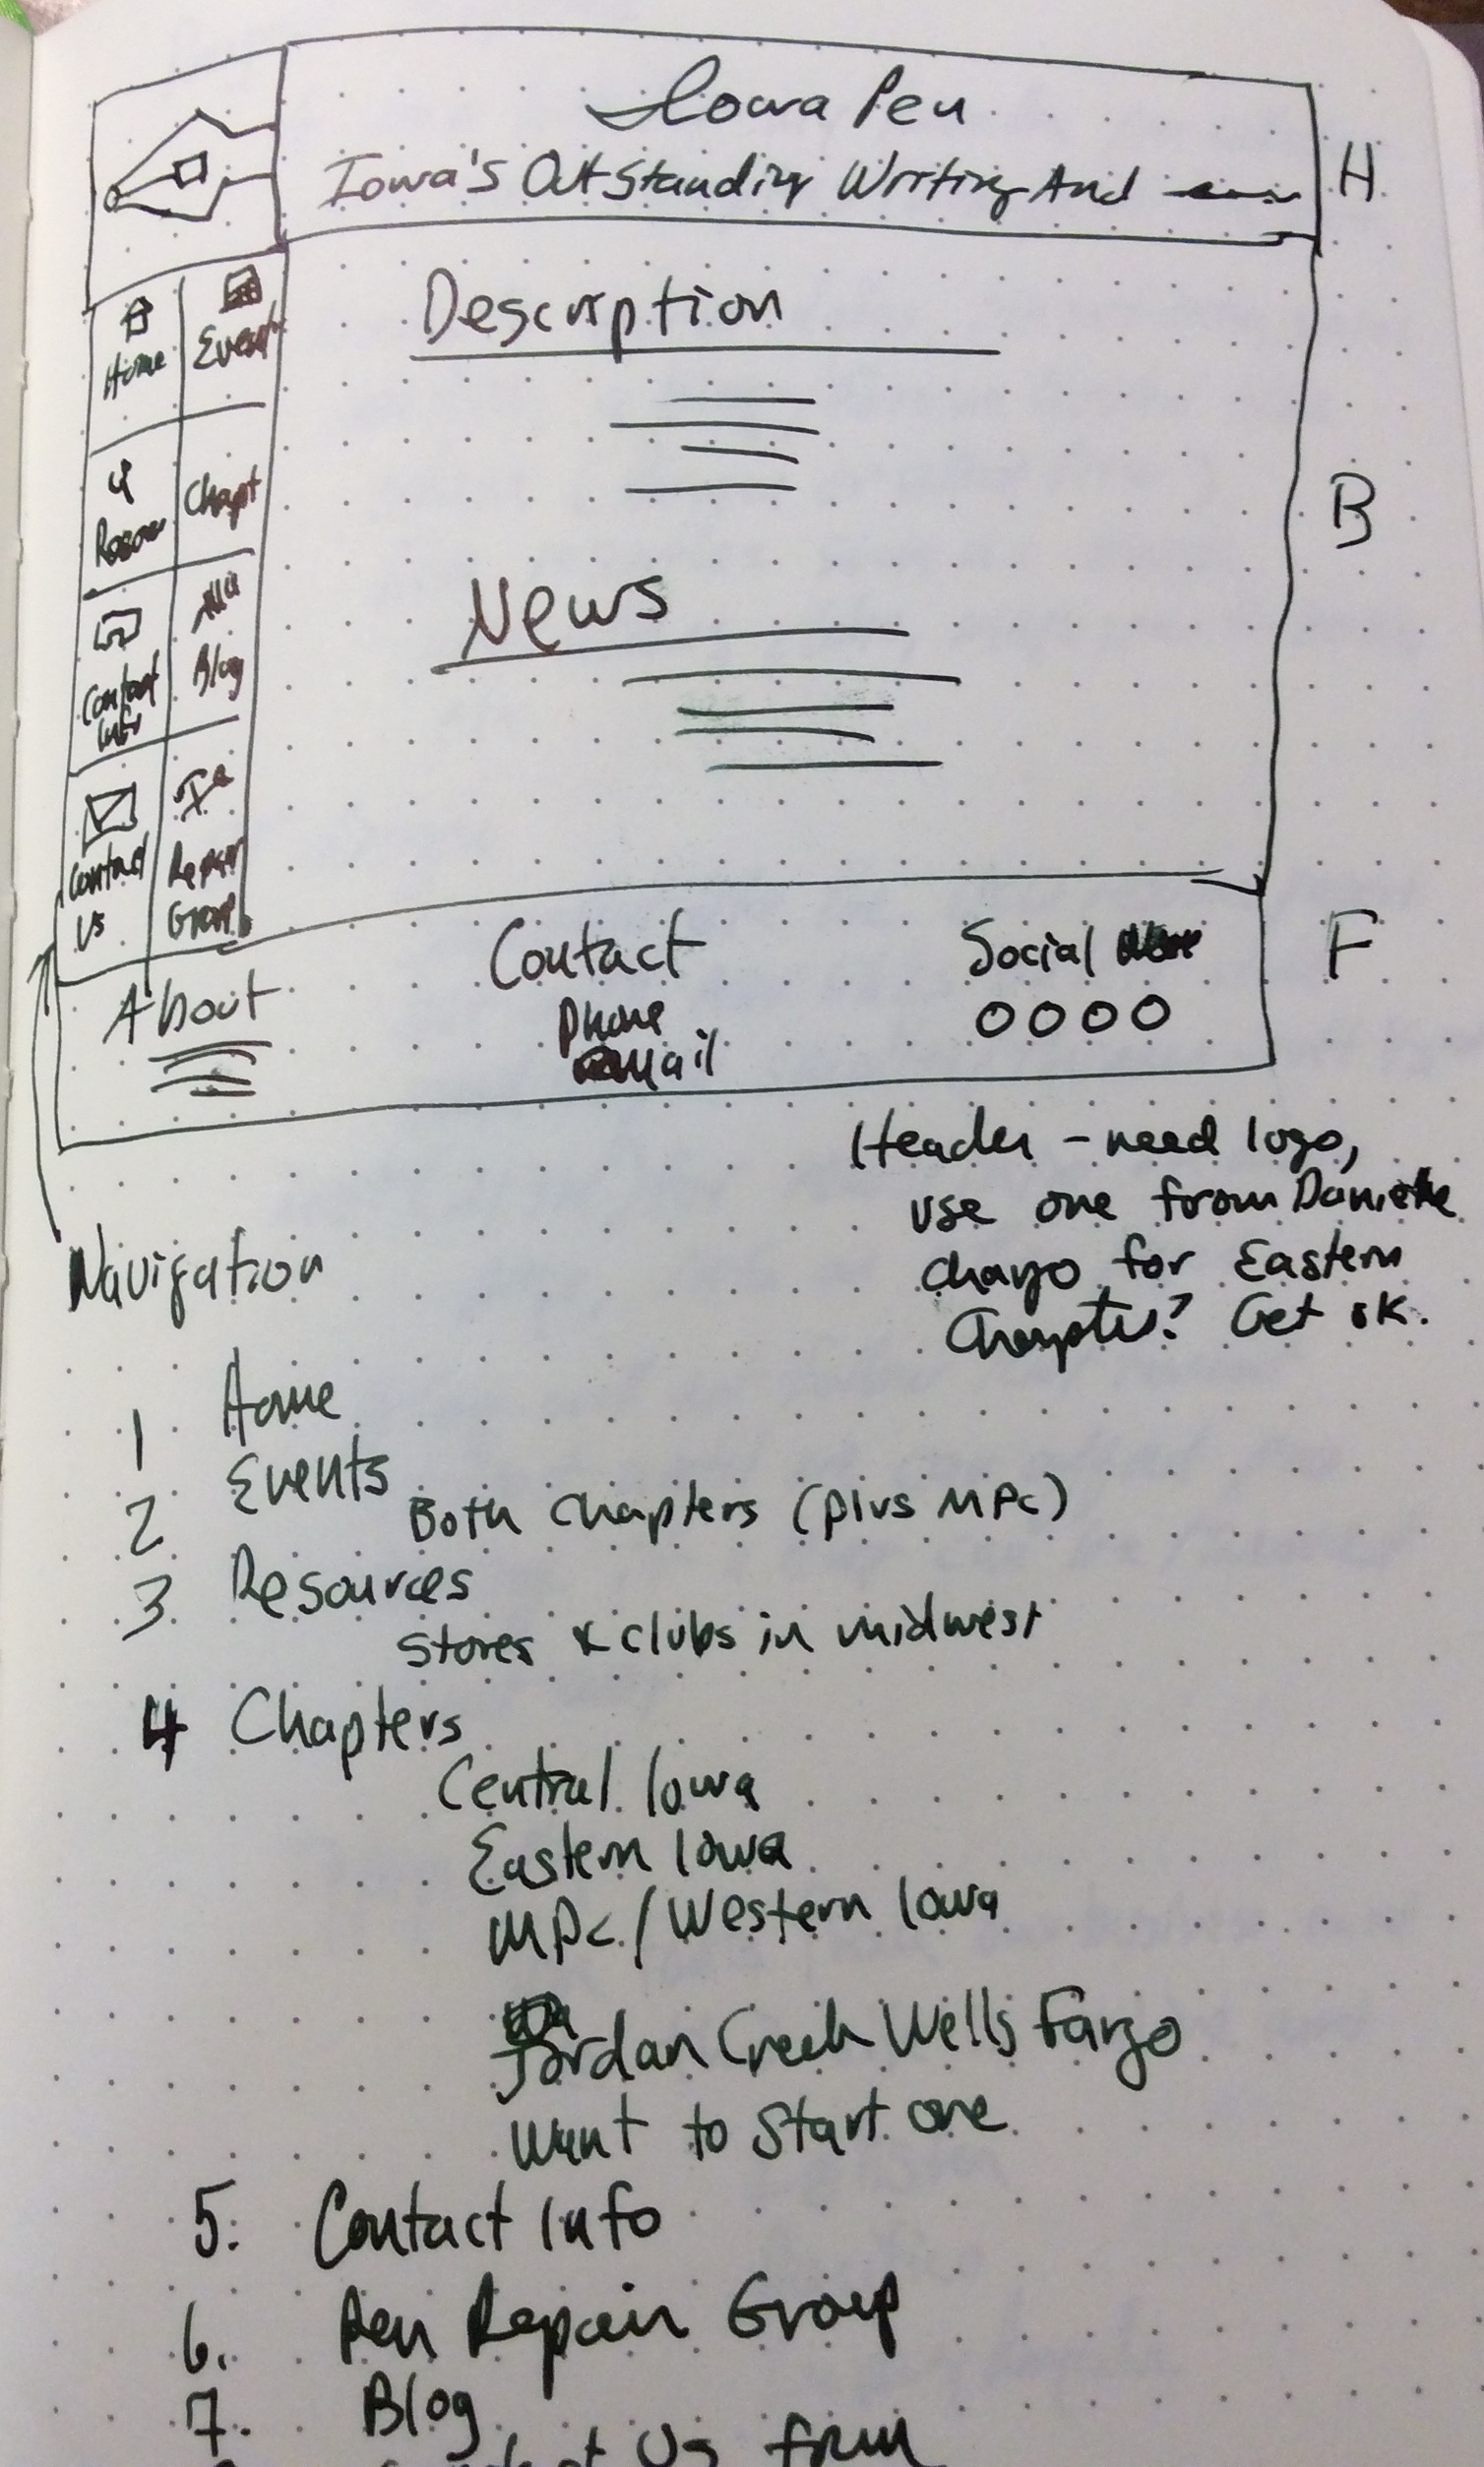 Iowa Pen
Iowa's Outstanding Writing And
H
Home
Event
Description
Chapt
B
Contact
Info
Blog
News
Contact
Us
Repair
Group
About
Contact
Phone
email
Social
F
Header - need logo,
use one from Danielle
for Eastern
Chapter? Get ok.
Navigation
1 Home
2 Events
Both Chapters (plus MPC)
3 Resources
Stores & clubs in midwest
4 Chapters
Central Iowa
Eastern Iowa
MPC/Western Iowa
Jordan Creek Wells Fargo
Want to Start one
5. Contact Info
6. Pen Repair Group
7. Blog
Us form